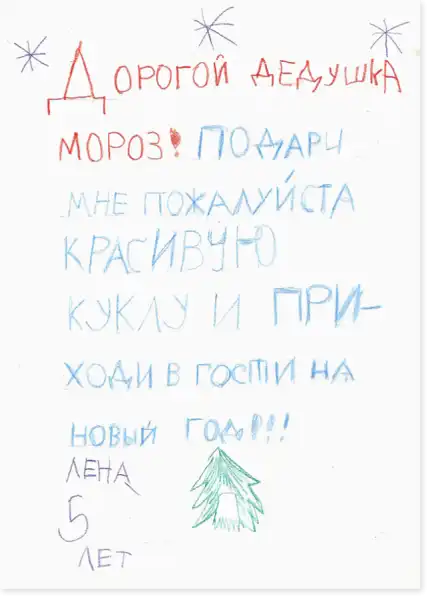 Дорогой дедушка
мороз! Подари
мне пожалуйста
красивую
куклу и при-
ходи в гости на
новый год!!!
Лена
5
лет